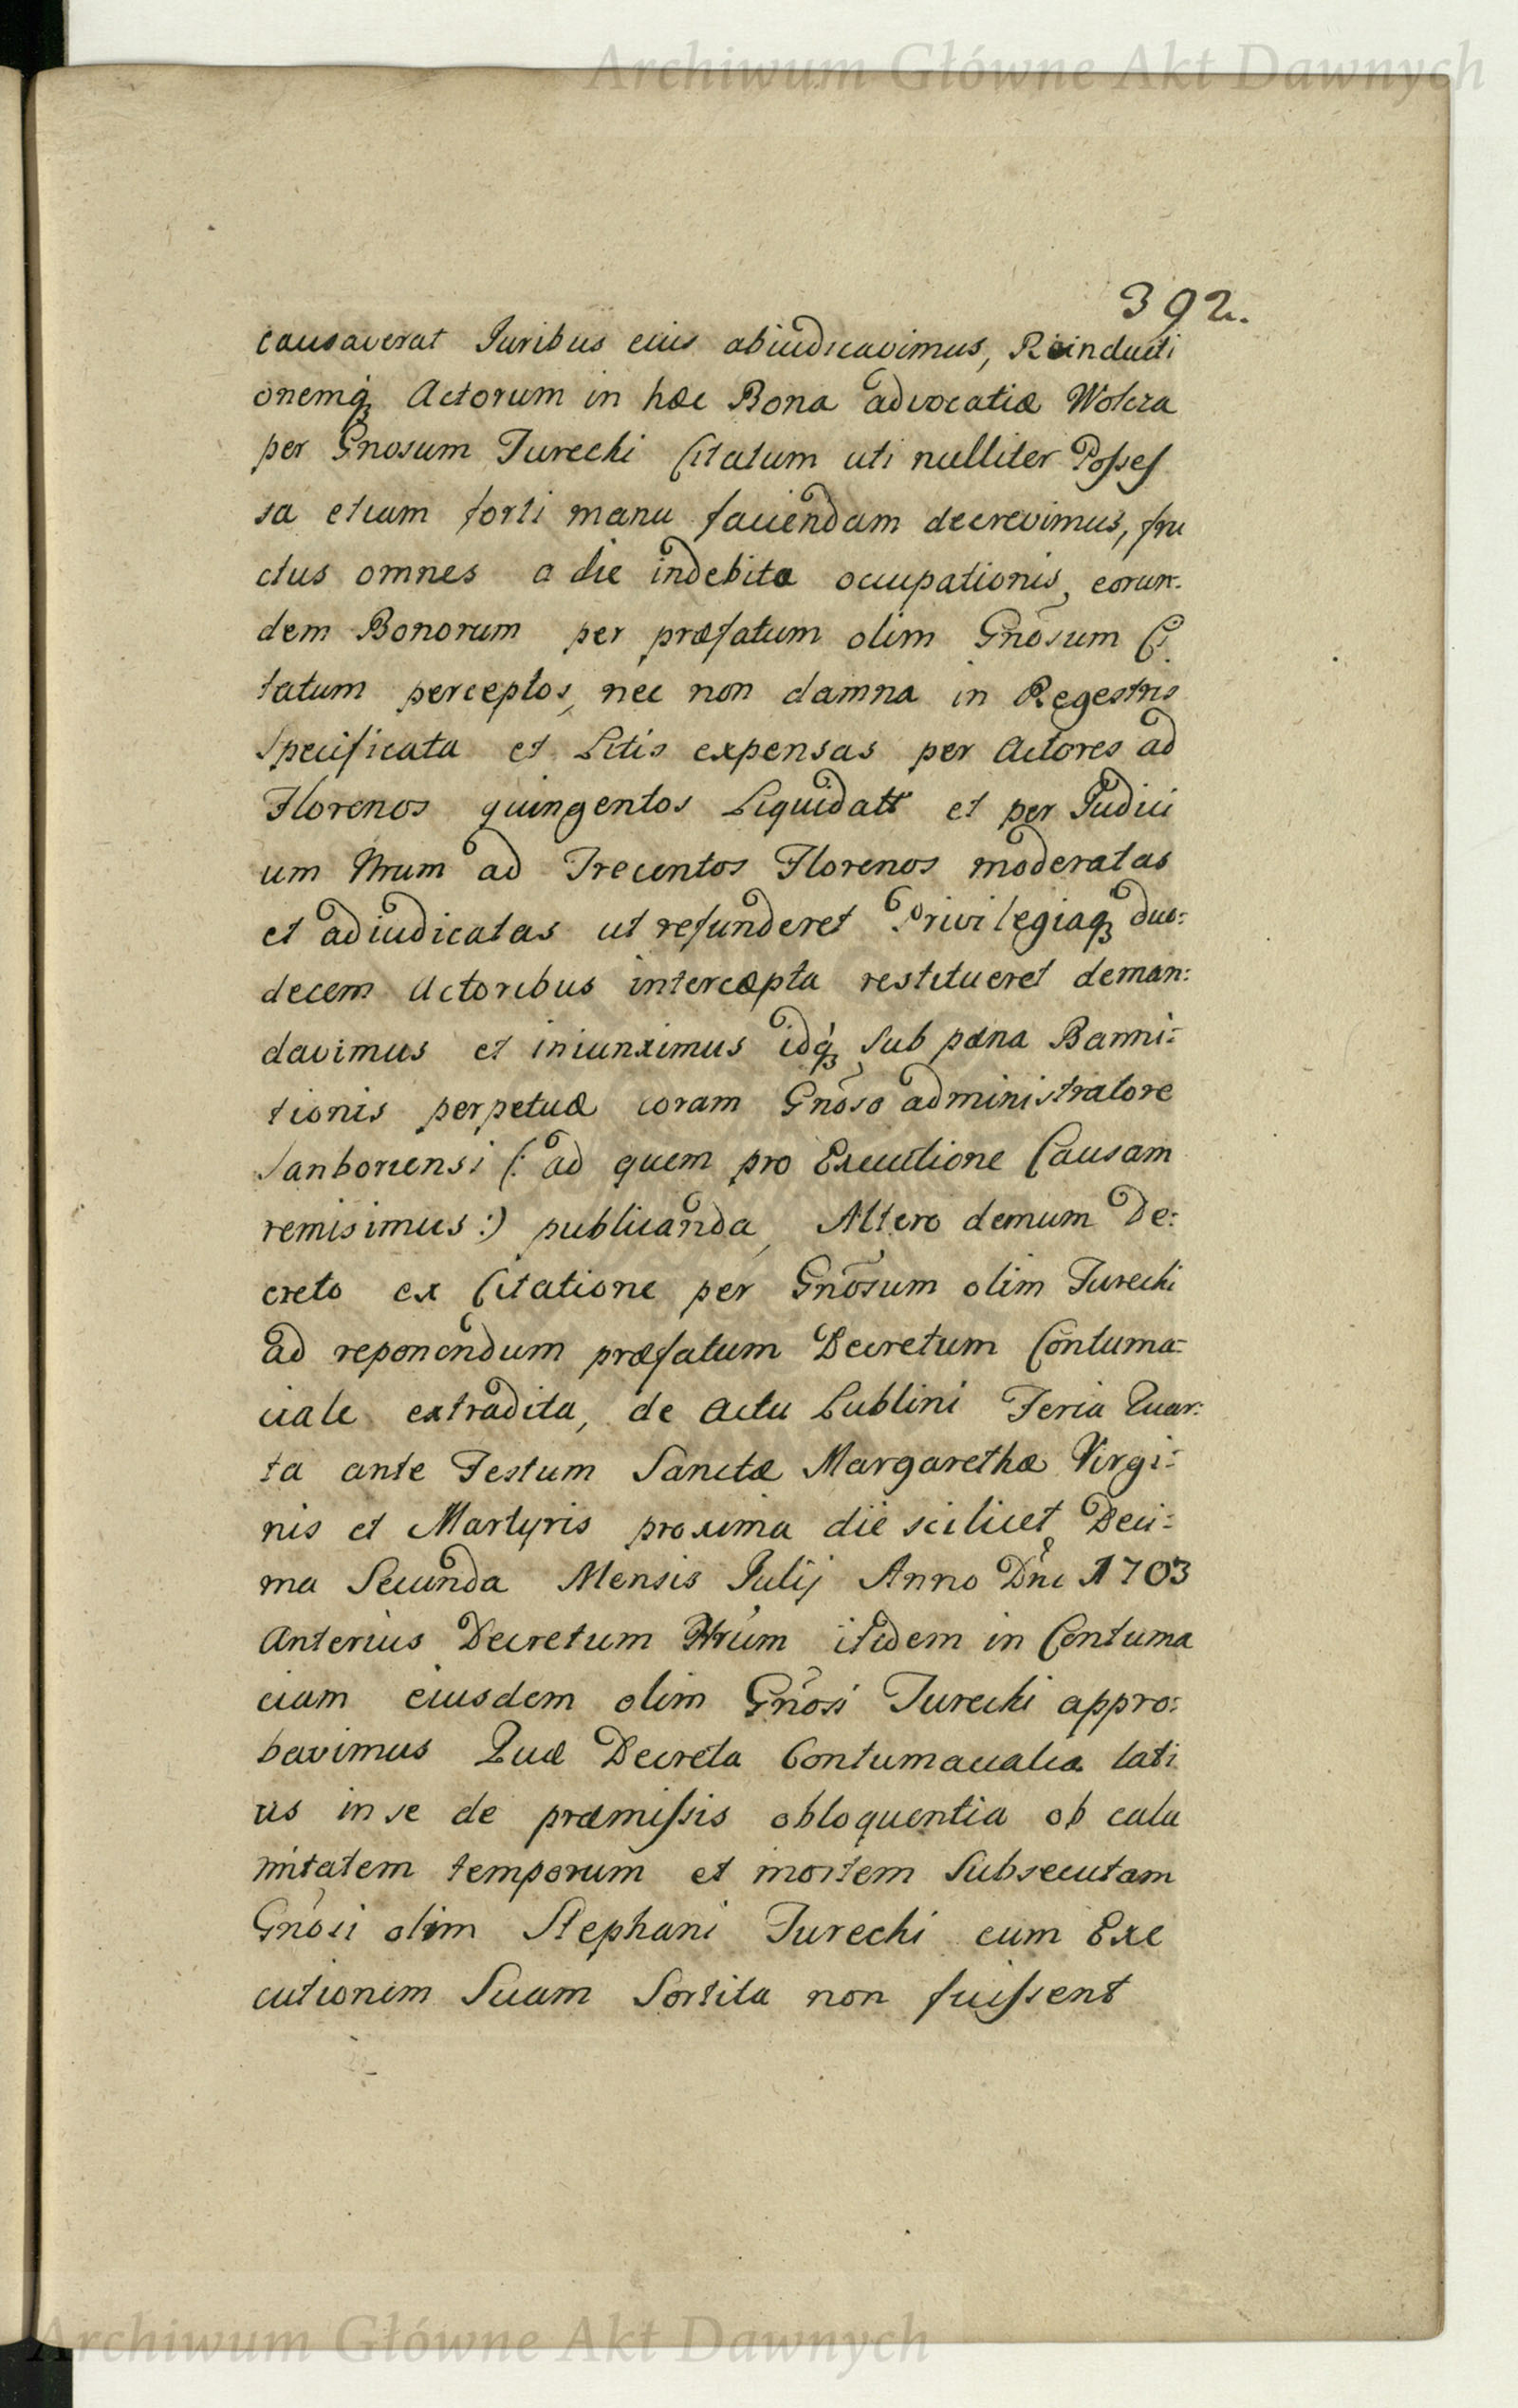 Archiwum Główne Akt Dawnych
392.
causaverat Iuribus eius abiudicavimus, Reinducti
onemq₃ Actorum in hæc Bona advocatiæ Wolcza
per Gnosum Turecki Citatum uti nulliter Posses
sa etiam forti manu faciendam decrevimus, fru
ctus omnes a die indebitæ occupationis, eorun-
dem Bonorum per præfatum olim Gnõsum Ci
tatum perceptos, nec non damna in Regestris
Specificata et Litis expensas per Actores ad
Florenos quingentos Liquidatt et per Iudici
um Nrum ad Trecentos Florenos moderatas
et adiudicatas ut refunderet Privilegiaq₃ duo:
decem Actoribus intercæpta restitueret deman:
davimus et iniunximus idq₃ sub pæna Banni:
tionis perpetuæ coram Gnõso administratore
Samboriensi (: ad quem pro Executione Causam
remisimus :) publicanda, Altero demum De:
creto ex Citatione per Gnõsum olim Turecki
ad reponendum præfatum Decretum Contuma:
ciale extradita, de Actu Lublini Feria Quar:
ta ante Festum Sanctæ Margarethæ Virgi:
nis et Martyris proxima die scilicet Deci:
ma Secunda Mensis Julij Anno Dni 1703
Anterius Decretum Nrum itidem in Contuma
ciam eiusdem olim Gnõsi Turecki appro:
bavimus Quæ Decreta Contumacialia lati
us in se de præmissis obloquentia ob cala
mitatem temporum et mortem Subsecutam
Gnõsi olim Stephani Turecki cum Exe
cutionem Suam Sortita non fuissent
Archiwum Główne Akt Dawnych